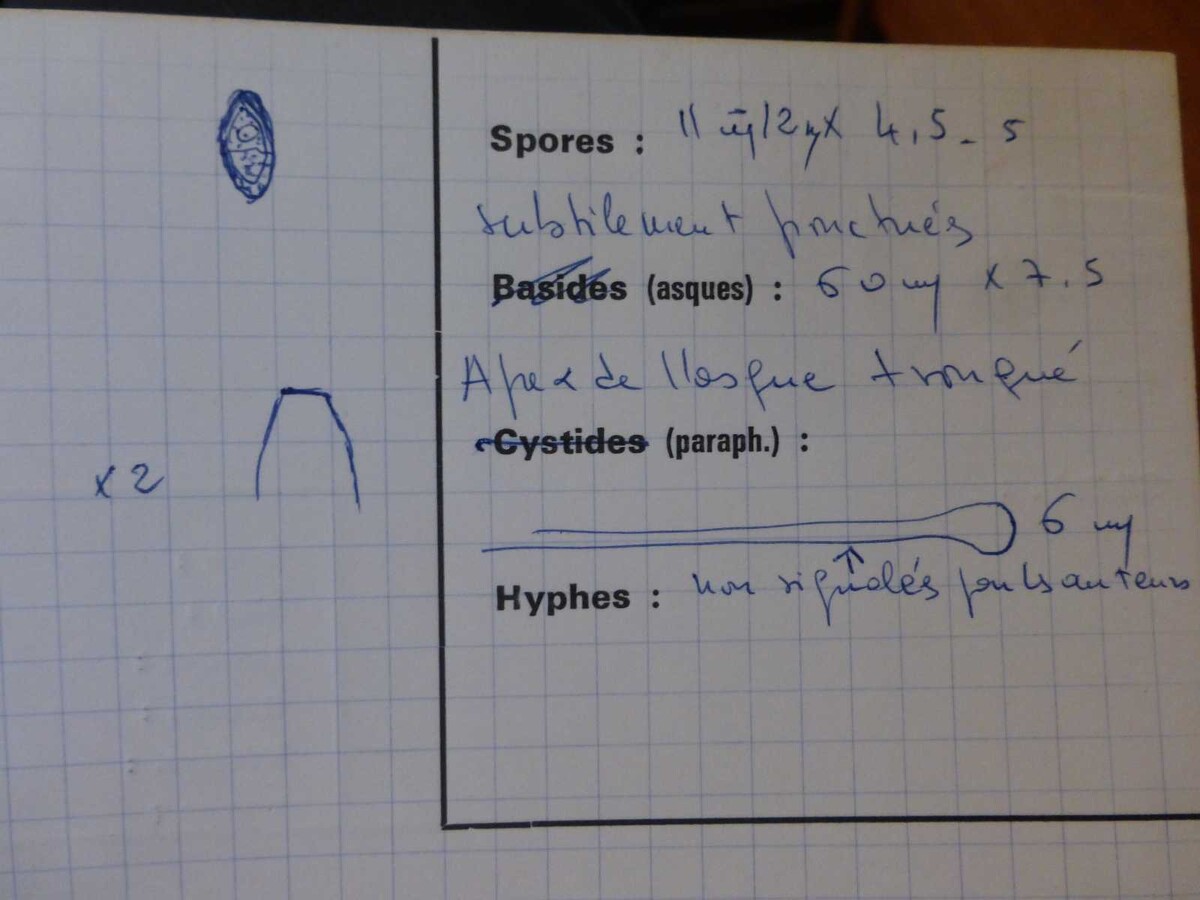 Spores : 11 à 12 µ x 4,5 - 5
subtilement ponctués
Basides (asques) : 60 µ x 7.5
Apex de l'asque tronqué
Cystides (paraph.) :
x2
6 µ
Hyphes : non signalés par les auteurs